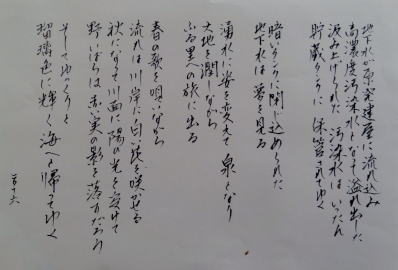 地下水が原発建屋に流れ込み
高濃度汚染水となって溢れ出した
汲み上げられた汚染水はいったん
貯蔵タンクに保管されてゆく
暗いタンクに閉じ込められた
地下水は夢を見る
湧水に姿を変えて泉となり
大地を潤しながら
ふる里への旅に出る
春の歌を唄いながら
流れは川岸に白い花を咲かせる
秋になって川面に陽の光を受けて
野いばらは赤い実の影を落すだろう
そしてゆっくりと
瑠璃色に輝く海へと帰ってゆく